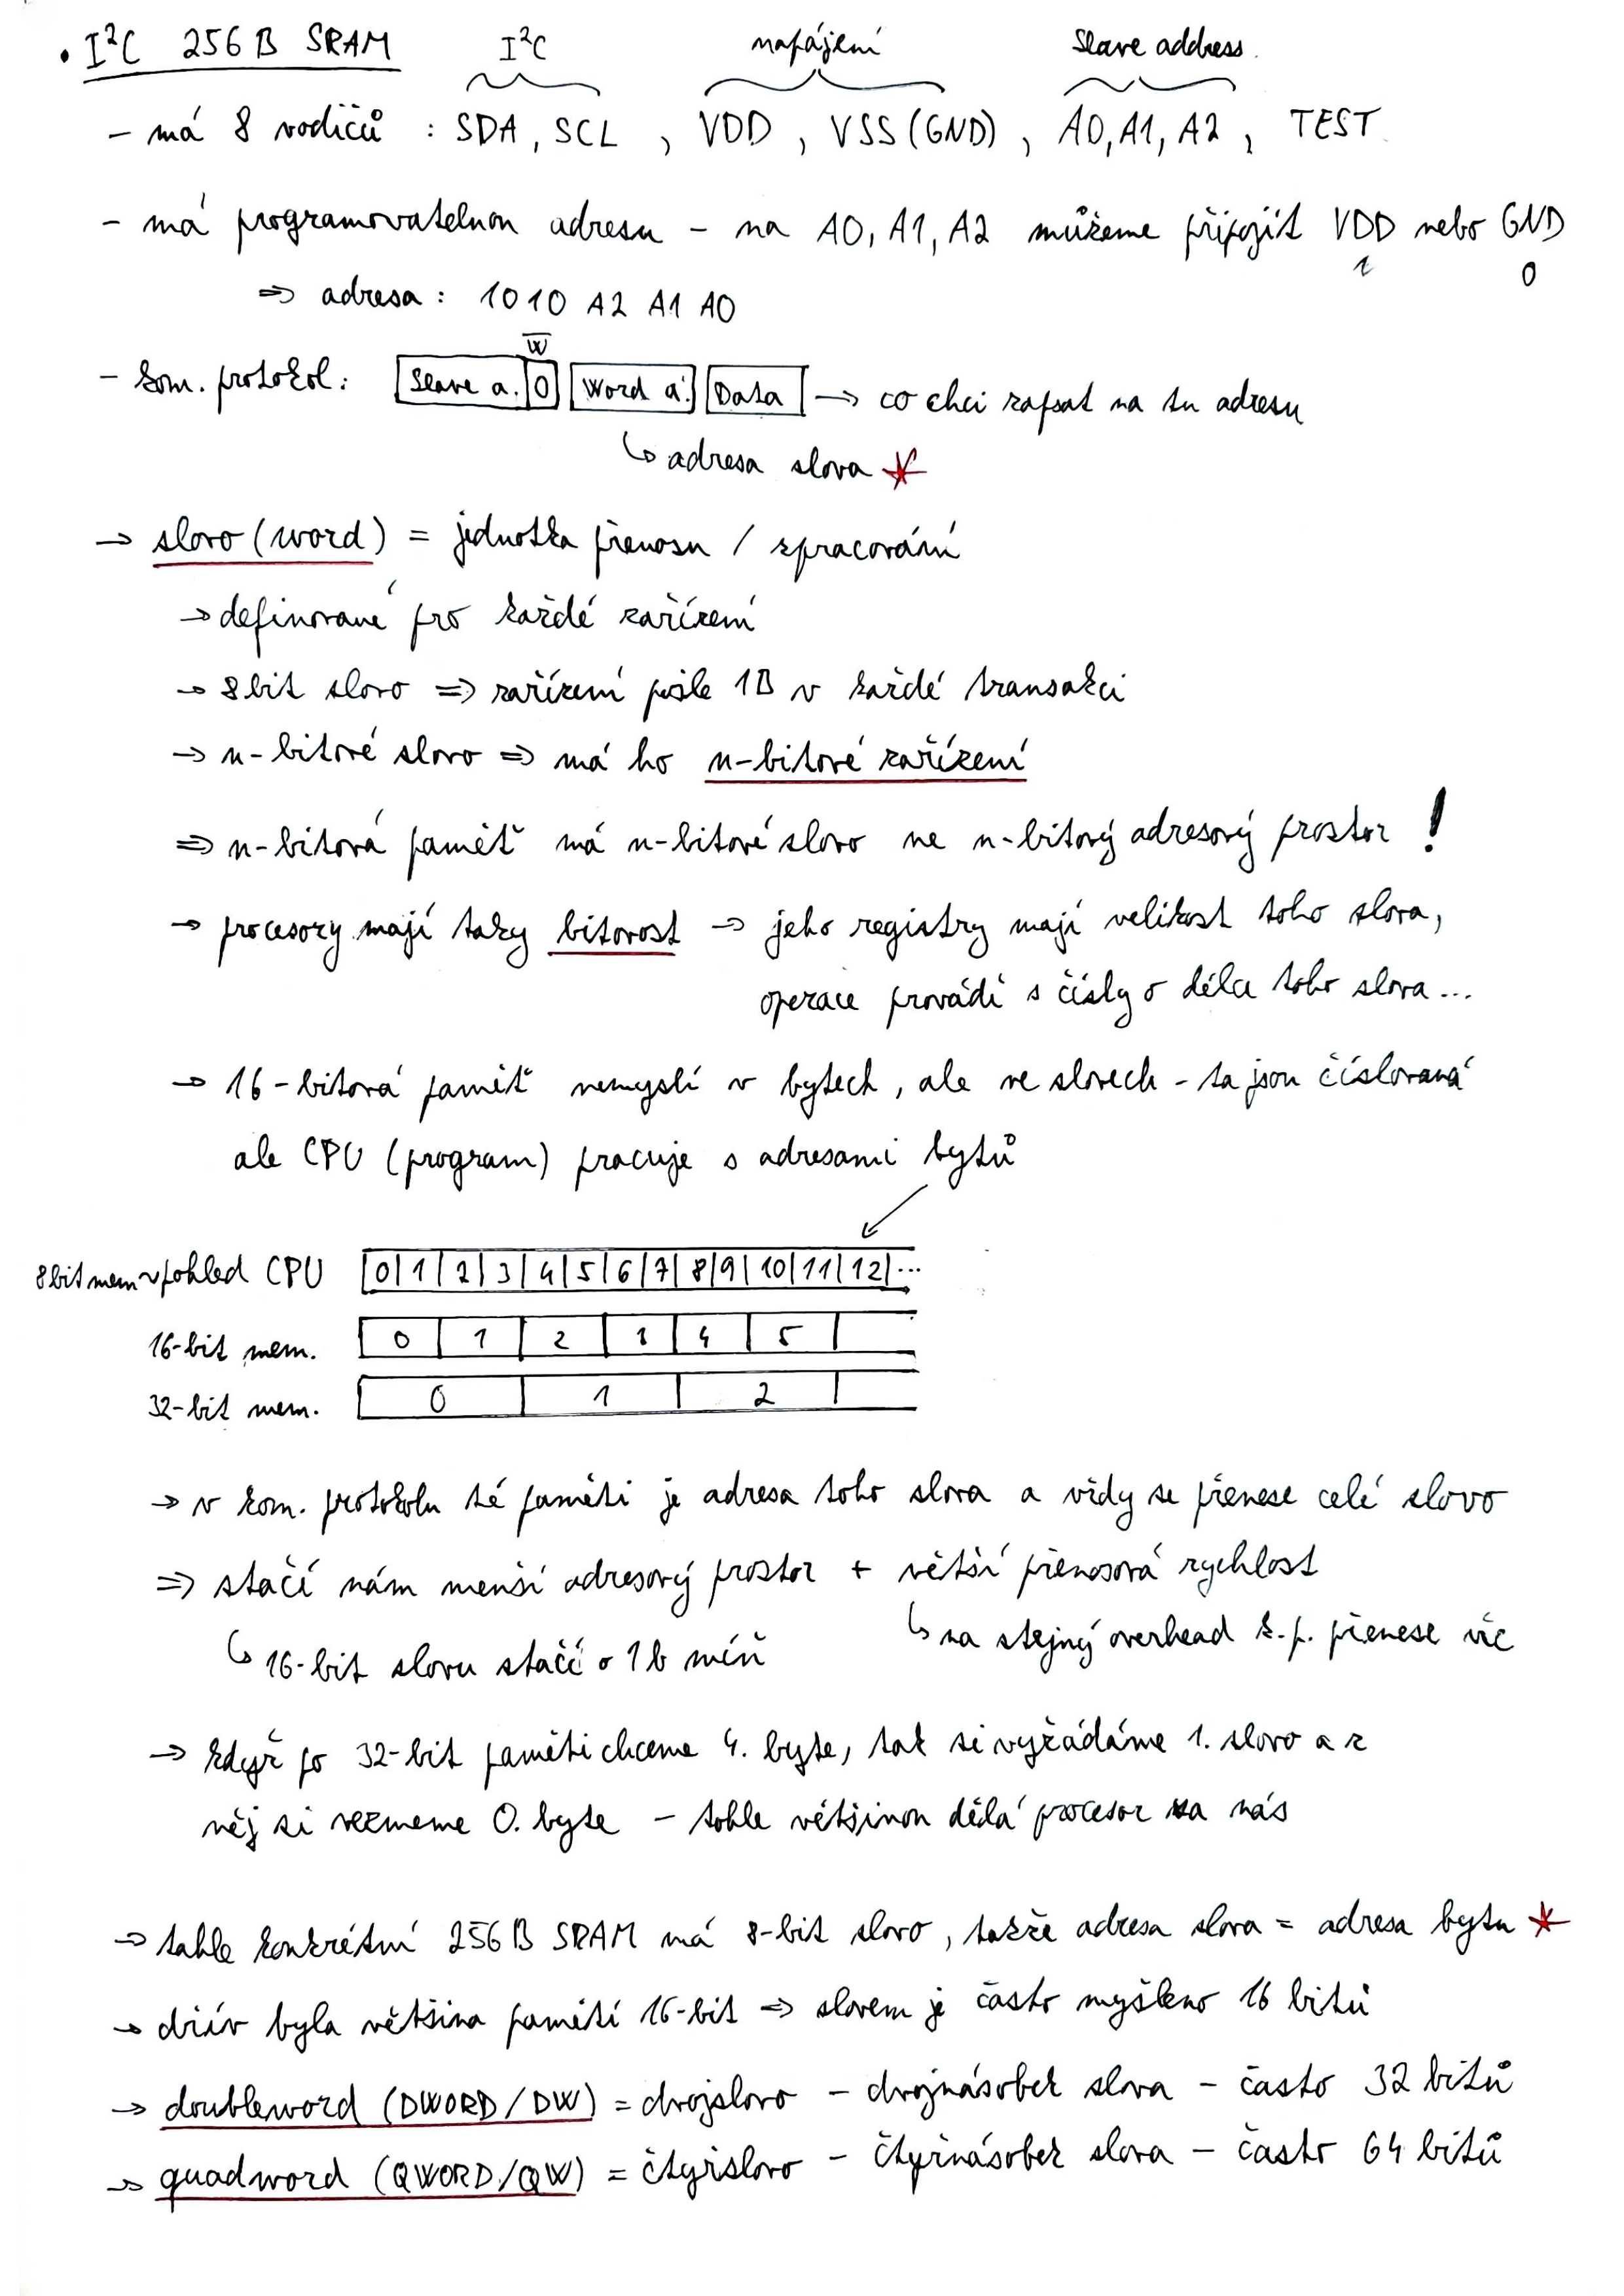 • I²C 256B SRAM
I²C napájení Slave address
- má 8 vodičů : SDA, SCL , VDD , VSS (GND) , A0, A1, A2 , TEST
- má programovatelnou adresu - na A0, A1, A2 můžeme připojit VDD nebo GND
1 0
⇒ adresa : 1010 A2 A1 A0
W̅
- kom. protokol : Slave a. 0 Word a. Data → co chci zapsat na tu adresu
↳ adresa slova *
→ slovo (word) = jednotka přenosu / zpracování
→ definované pro každé zařízení
→ 8bit slovo ⇒ zařízení pošle 1B v každé transakci
→ n-bitové slovo ⇒ má ho n-bitové zařízení
⇒ n-bitová paměť má n-bitové slovo ne n-bitový adresový prostor !
→ procesory mají taky bitovost → jeho registry mají velikost toho slova,
operace provádí s čísly o délce toho slova ...
→ 16-bitová paměť nemyslí v bytech, ale ve slovech - ta jsou číslovaná
ale CPU (program) pracuje s adresami bytů
8bit mem ~ pohled CPU 0 1 2 3 4 5 6 7 8 9 10 11 12 ...
16-bit mem. 0 1 2 3 4 5
32-bit mem. 0 1 2
→ v kom. protokolu té paměti je adresa toho slova a vždy se přenese celé slovo
⇒ stačí nám menší adresový prostor + větší přenosová rychlost
↳ na stejný overhead k.p. přenese víc
↳ 16-bit slovu stačí o 1b míň
→ když po 32-bit paměti chceme 4. byte, tak si vyžádáme 1. slovo a z
něj si vezmeme 0. byte - tohle většinou dělá procesor za nás
→ tahle konkrétní 256B SRAM má 8-bit slovo, takže adresa slova = adresa bytu *
→ dřív byla většina pamětí 16-bit ⇒ slovem je často myšleno 16 bitů
→ doubleword (DWORD/DW) = dvojslovo - dvojnásobek slova - často 32 bitů
→ quadword (QWORD/QW) = čtyřslovo - čtyřnásobek slova - často 64 bitů